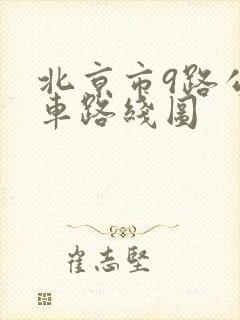 北京市9路公
車路綫图
崔志堅